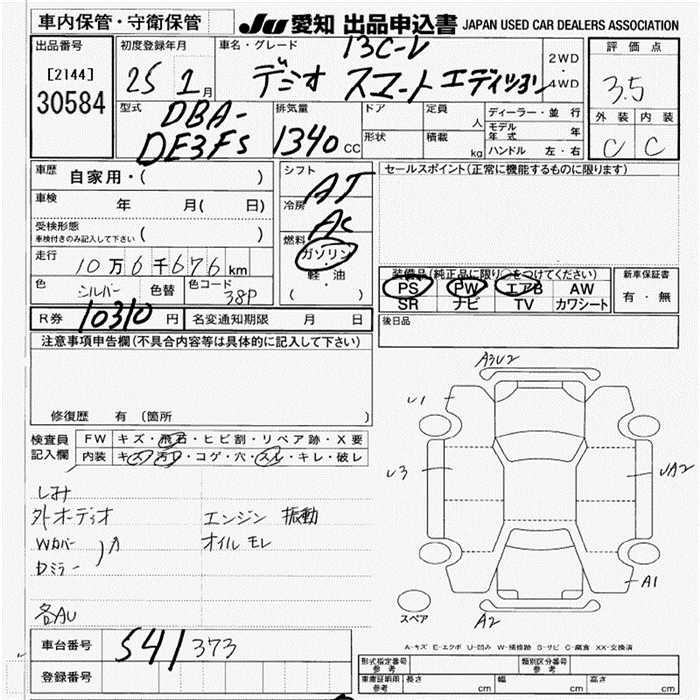 車内保管・守衛保管
JU 愛知 出品申込書 JAPAN USED CAR DEALERS ASSOCIATION
出品番号
[2144]
30584
初度登録年月
25 2月
車名・グレード
13C-V
デミオ スマートエディション
2WD
・
4WD
評価点
3.5
外装 内装
C C
型式
DBA-
DE3FS
排気量
1340 cc
ドア
形状
定員
人
積載
kg
ディーラー・並行
モデル年式 年
ハンドル 左・右
車歴
自家用・( )
車検
年 月( 日)
受検形態
車検付きのみ記入して下さい ( )
走行
10万6千676 km
色 シルバー 色替 色コード 38P
シフト AT
冷房 AC
燃料
ガソリン
軽・油
( )
セールスポイント(正常に機能するものに限ります)
装備品(純正品に限り○をつけてください)
PS PW エアB AW
SR ナビ TV カワシート
新車保証書
有・無
後日品
R券 10310 円 名変通知期限 月 日
注意事項申告欄(不具合内容等は具体的に記入して下さい)
修復歴 有 (箇所 )
検査員
記入欄
FW キズ・飛石・ヒビ割・リペア跡・X要
内装 キズ・汚れ・コゲ・穴・スレ・キレ・破レ
しみ
外オーディオ
Wカバー
Dミラー
各AU
エンジン 振動
オイルモレ
A3U2
U1
U3
UA2
A1
A2
スペア
A-キズ E-エクボ U-凹み W-補修跡 S-サビ C-腐食 XX-交換済
車台番号 541373
登録番号
形式指定番号
参考
類別区分番号
参考
車庫証明用
参考
長さ cm 幅 cm 高さ cm